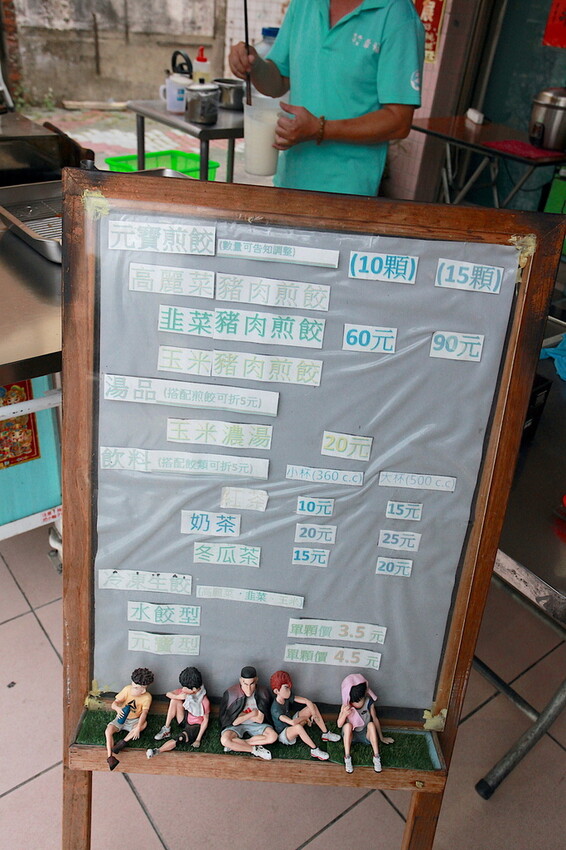 元寶煎餃 (數量可告知調整) (10顆) (15顆)
高麗菜豬肉煎餃
韭菜豬肉煎餃 60元 90元
玉米豬肉煎餃
湯品 (搭配煎餃可折5元)
玉米濃湯 20元
飲料 (搭配餃類可折5元) 小杯(360 c.c) 大杯(500 c.c)
紅茶 10元 15元
奶茶 20元 25元
冬瓜茶 15元 20元
冷凍生餃 (高麗菜，韭菜，玉米)
水餃型 單顆價 3.5 元
元寶型 單顆價 4.5 元